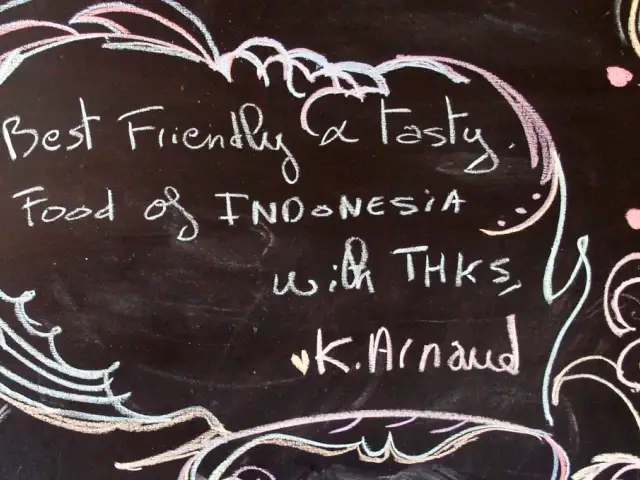 Best Friendly & Tasty.
Food of INDONESIA
with THKS,
K. Arnaud